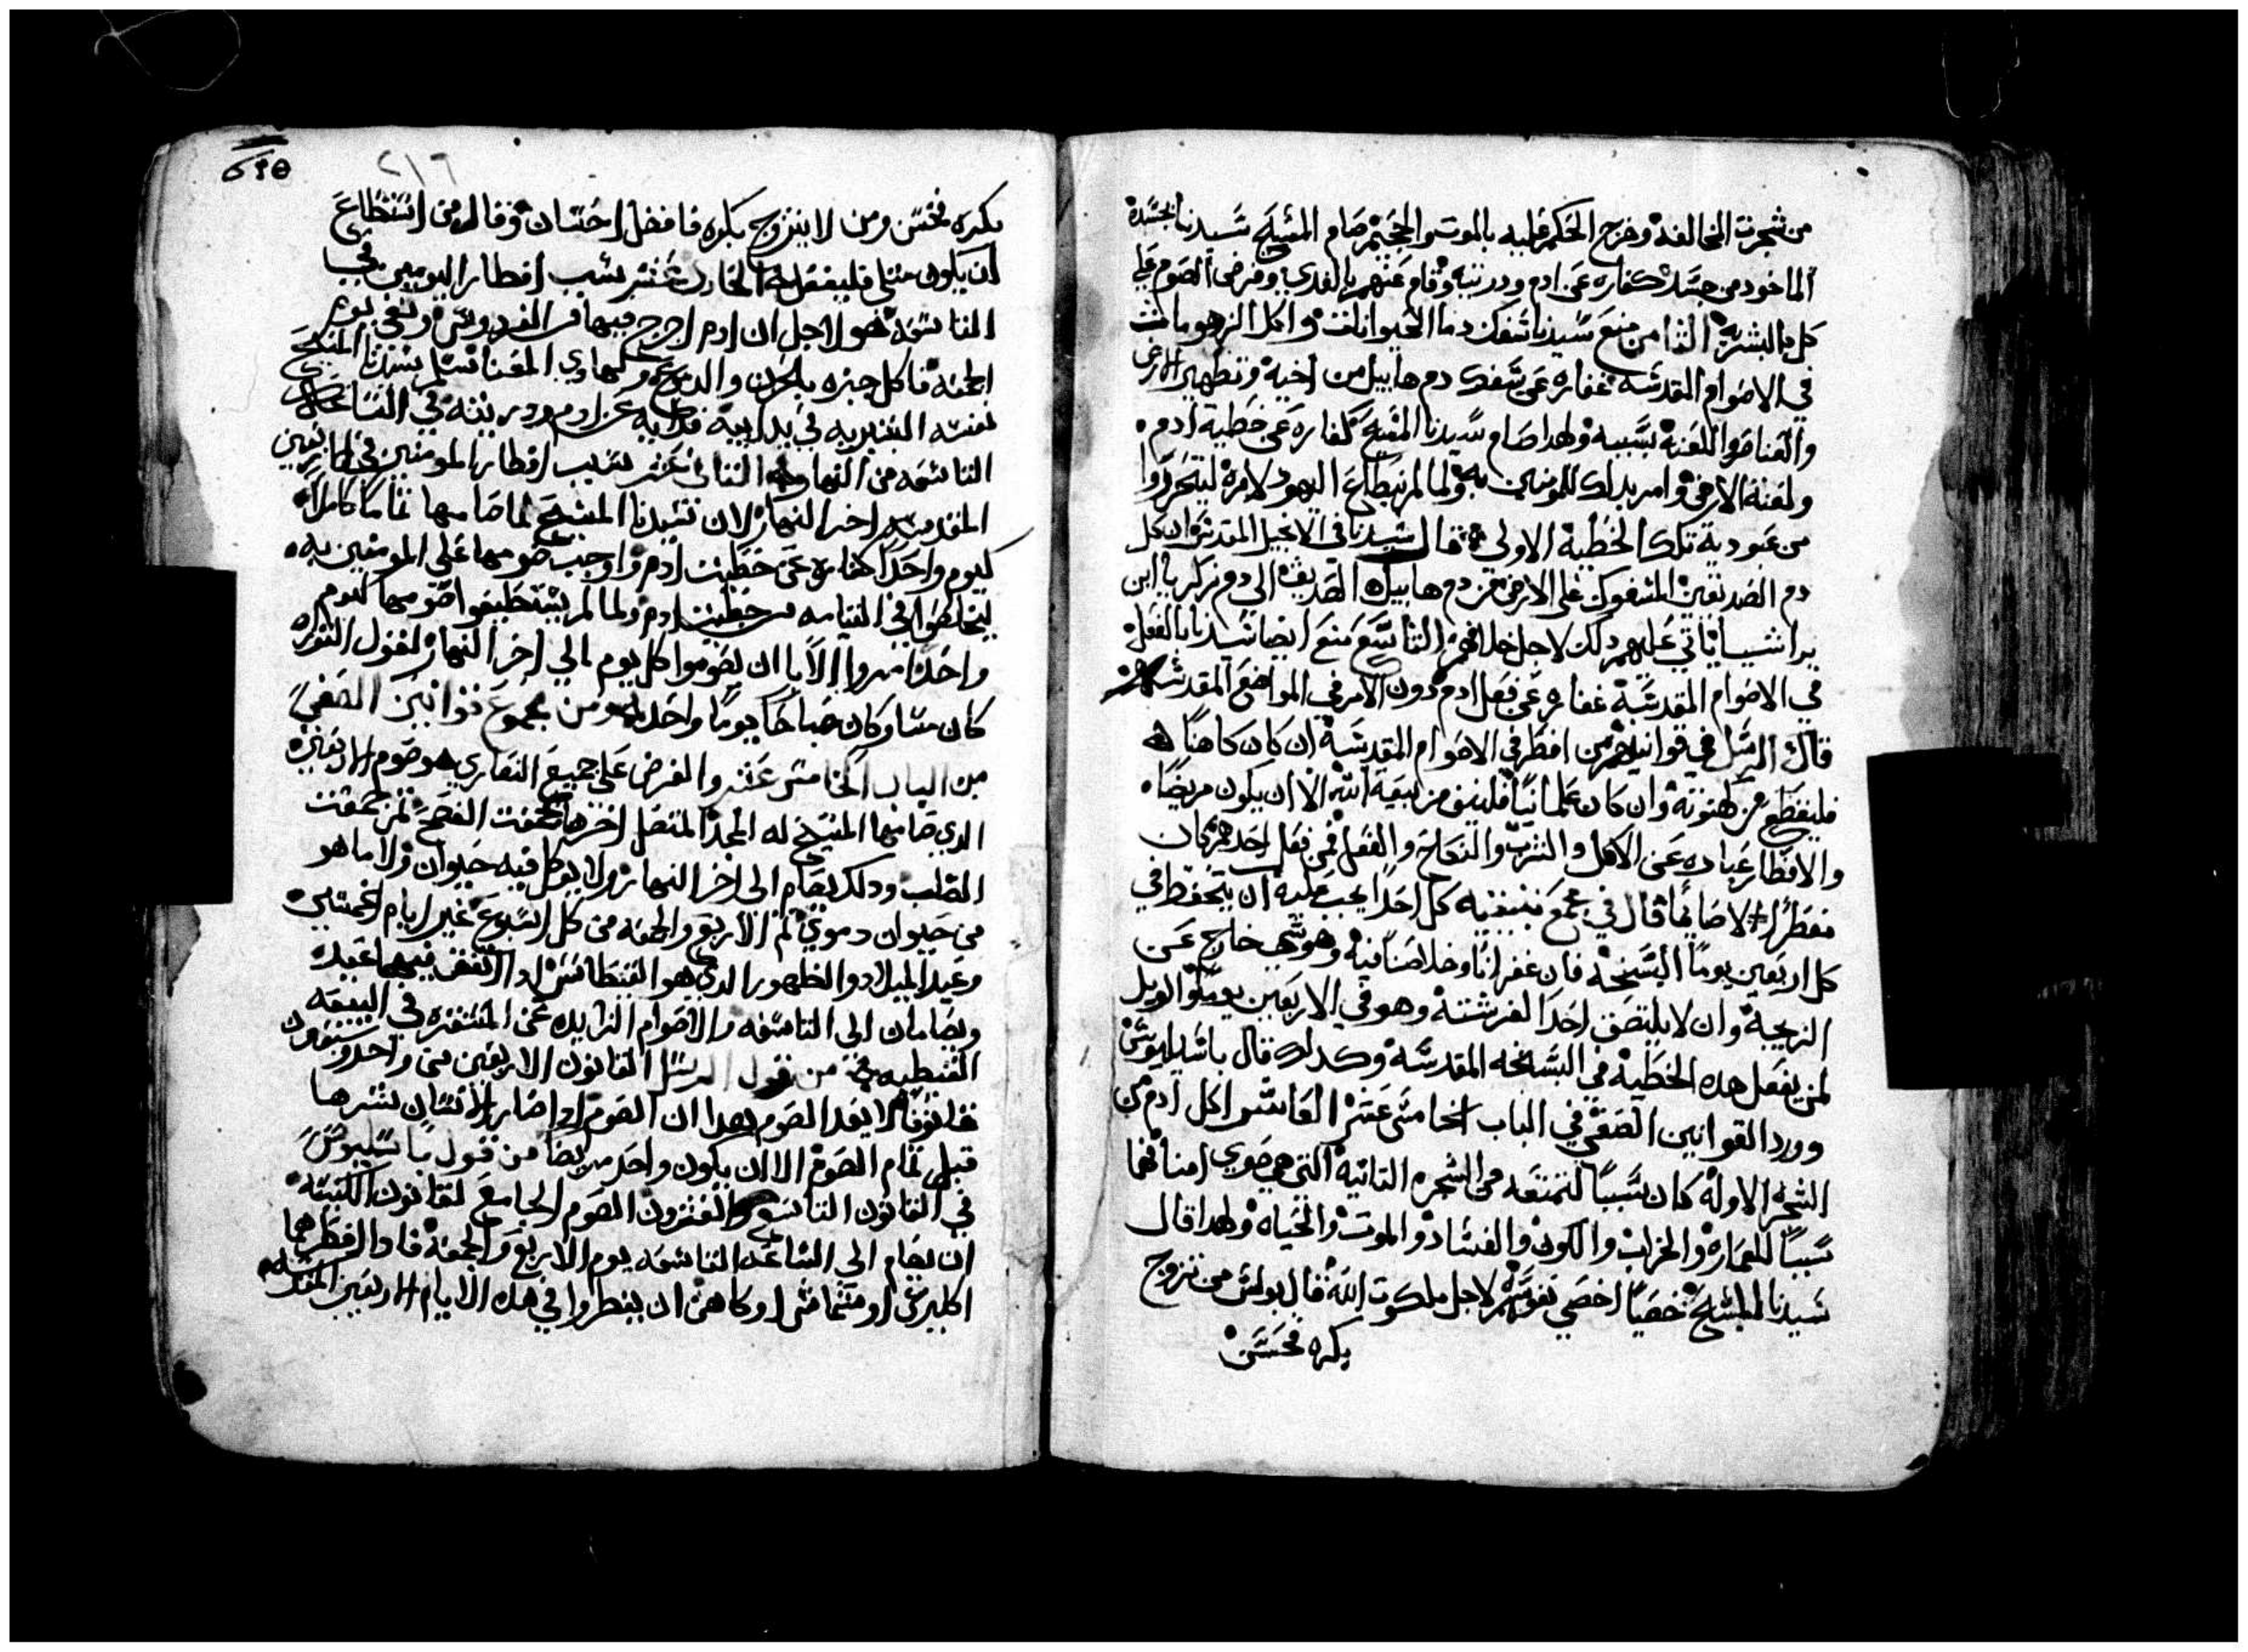 من شجرت المخالفه وخرج الحكم عليه بالموت والجحيم صام المسيح سيدنا بجسده
الماخود من جسده كفاره عن ادم ودريته وقام عنهم بالفدي وفرض الصوم علي
كل البشريه الثامن منع سيدنا سفك دما الحيوانات واكل الزهومات
في الاصوام المقدسه غفاره عن سفك دم هابيل من اخيه وتطهير الارض
والقناصوا اللعنه بسببه ولهدا صام سيدنا المسيح كفاره عن خطية ادم
ولعنة الارض وامر بدلك للمومنين به ولما لم يطاع اليهود لامره ليتحرروا
من عبودية تلك الخطية الاولي قال سيدنا في الانجيل المقدس ان كل
دم الصديقين المسفوك علي الارض من دم هابيل الصديق الي دم زكريا ابن
براشيا ياتي عليهم دلك لاجل خلافهم التاسع منع ايضا سيدنا بالفعل
في الاصوام المقدسة غفاره عن فعل ادم دون الامر في المواضع المقدسه
قال الرسل في قوانينهم من افطر في الاصوام المقدسة ان كان كاهنا
فليقطع من كهنوته وان كان علمانيا فلينف من بيعة الله الا ان يكون مريضا
والافطار عباره عن الاكل والشرب والنكاح والفعل فمن فعل احدهم كان
مفطرا لا صايما قال في مجمع نيقيه كل احدا يجب عليه ان يتحفظ في
كل اربعين يوما السيخة فان غفرانا وخلاصنا فيه وهو شي خارج عن
الزيجية وان لا يلتصق احدا لفرشته وهو في الاربعين يوما والويل
لمن يفعل هده الخطية في البسخه المقدسة وكدلك قال باسيليوس
وورد القوانين الصفي في الباب الخامس عشر العاشر اكل ادم من
الشجره الاوله كان سببا لتمتعه من الشجره التانية التي هي حوي امنا فهما
سببا للعماره والخراب والكون والفساد والموت والحياه ولهدا قال
سيدنا المسيح خصيا اخصي نفوسهم لاجل ملكوت الله قال بولس من تزوج
بكره فحسن
٢١٦
بكره فحسن ومن لا يتزوج بكره فافضل احسان وقال من استطاع
ان يكون مثلي فليفعل الحادي عشر سبب افطار اليوميين في
التاسعه هو لاجل ان ادم اخرج فيها من الفردوس ونفي نوع
الجنه فاكل خبزه بالحزن والدموع سيدنا المسيح
نفسه البشريه في بدايته فدايه عن ادم ودريته في الساعه
التاسعه من النهار الثاني عشر سبب افطار المومنين في الاربعين
المقدسه اخر النهار لان سيدنا المسيح لما صامها تماما كاملا
كيوم واحدا كفاره عن خطيت ادم واوجب صومها علي المومنين به
ليخلصوا في القيامه من خطيت ادم ولما لم يستطيعوا صومها كيوم
واحدا امروا الابا ان يصوموا كل يوم الي اخر النهار لقول التوراه
كان مسا وكان صباحا يوما واحد من مجموع قوانين الصفي
من الباب الخامس عشر والفرض علي جميع النصاري هو صوم الاربعين
الدي صامها المسيح له المجد المتصل اخرها بجمعت الفصح ثم جمعت
الصلب ودلك يصام الي اخر النهار ولا يوكل فيه حيوان ولا ما هو
من حيوان دموي ثم الاربع والجمعه من كل اسبوع غير ايام الخمسين
وعيد الميلاد والظهور الدي هو الغطاس ادا اتفق فيهما عيد
ويصامان الي التاسعه والاصوام الزايده عن المستقره في البيعه
القبطيه من قول الرسل القانون الاربعين من واحد وستون
قانونا لا يعد الصوم بهدا ان الصوم اداصار الانسان يشرها
قبل تمام الصوم الا ان يكون واحد مريضا من قول باسليوس
في القانون التاسع والعشرون الصوم الجامع لقانون الكنيسه
ان يصام الي الساعه التاسعه يوم الاربع والجمعة فادا افطرهما
اكليرس او شماس او كاهن ان يفطروا في هده الايام الاربعين المقدسه